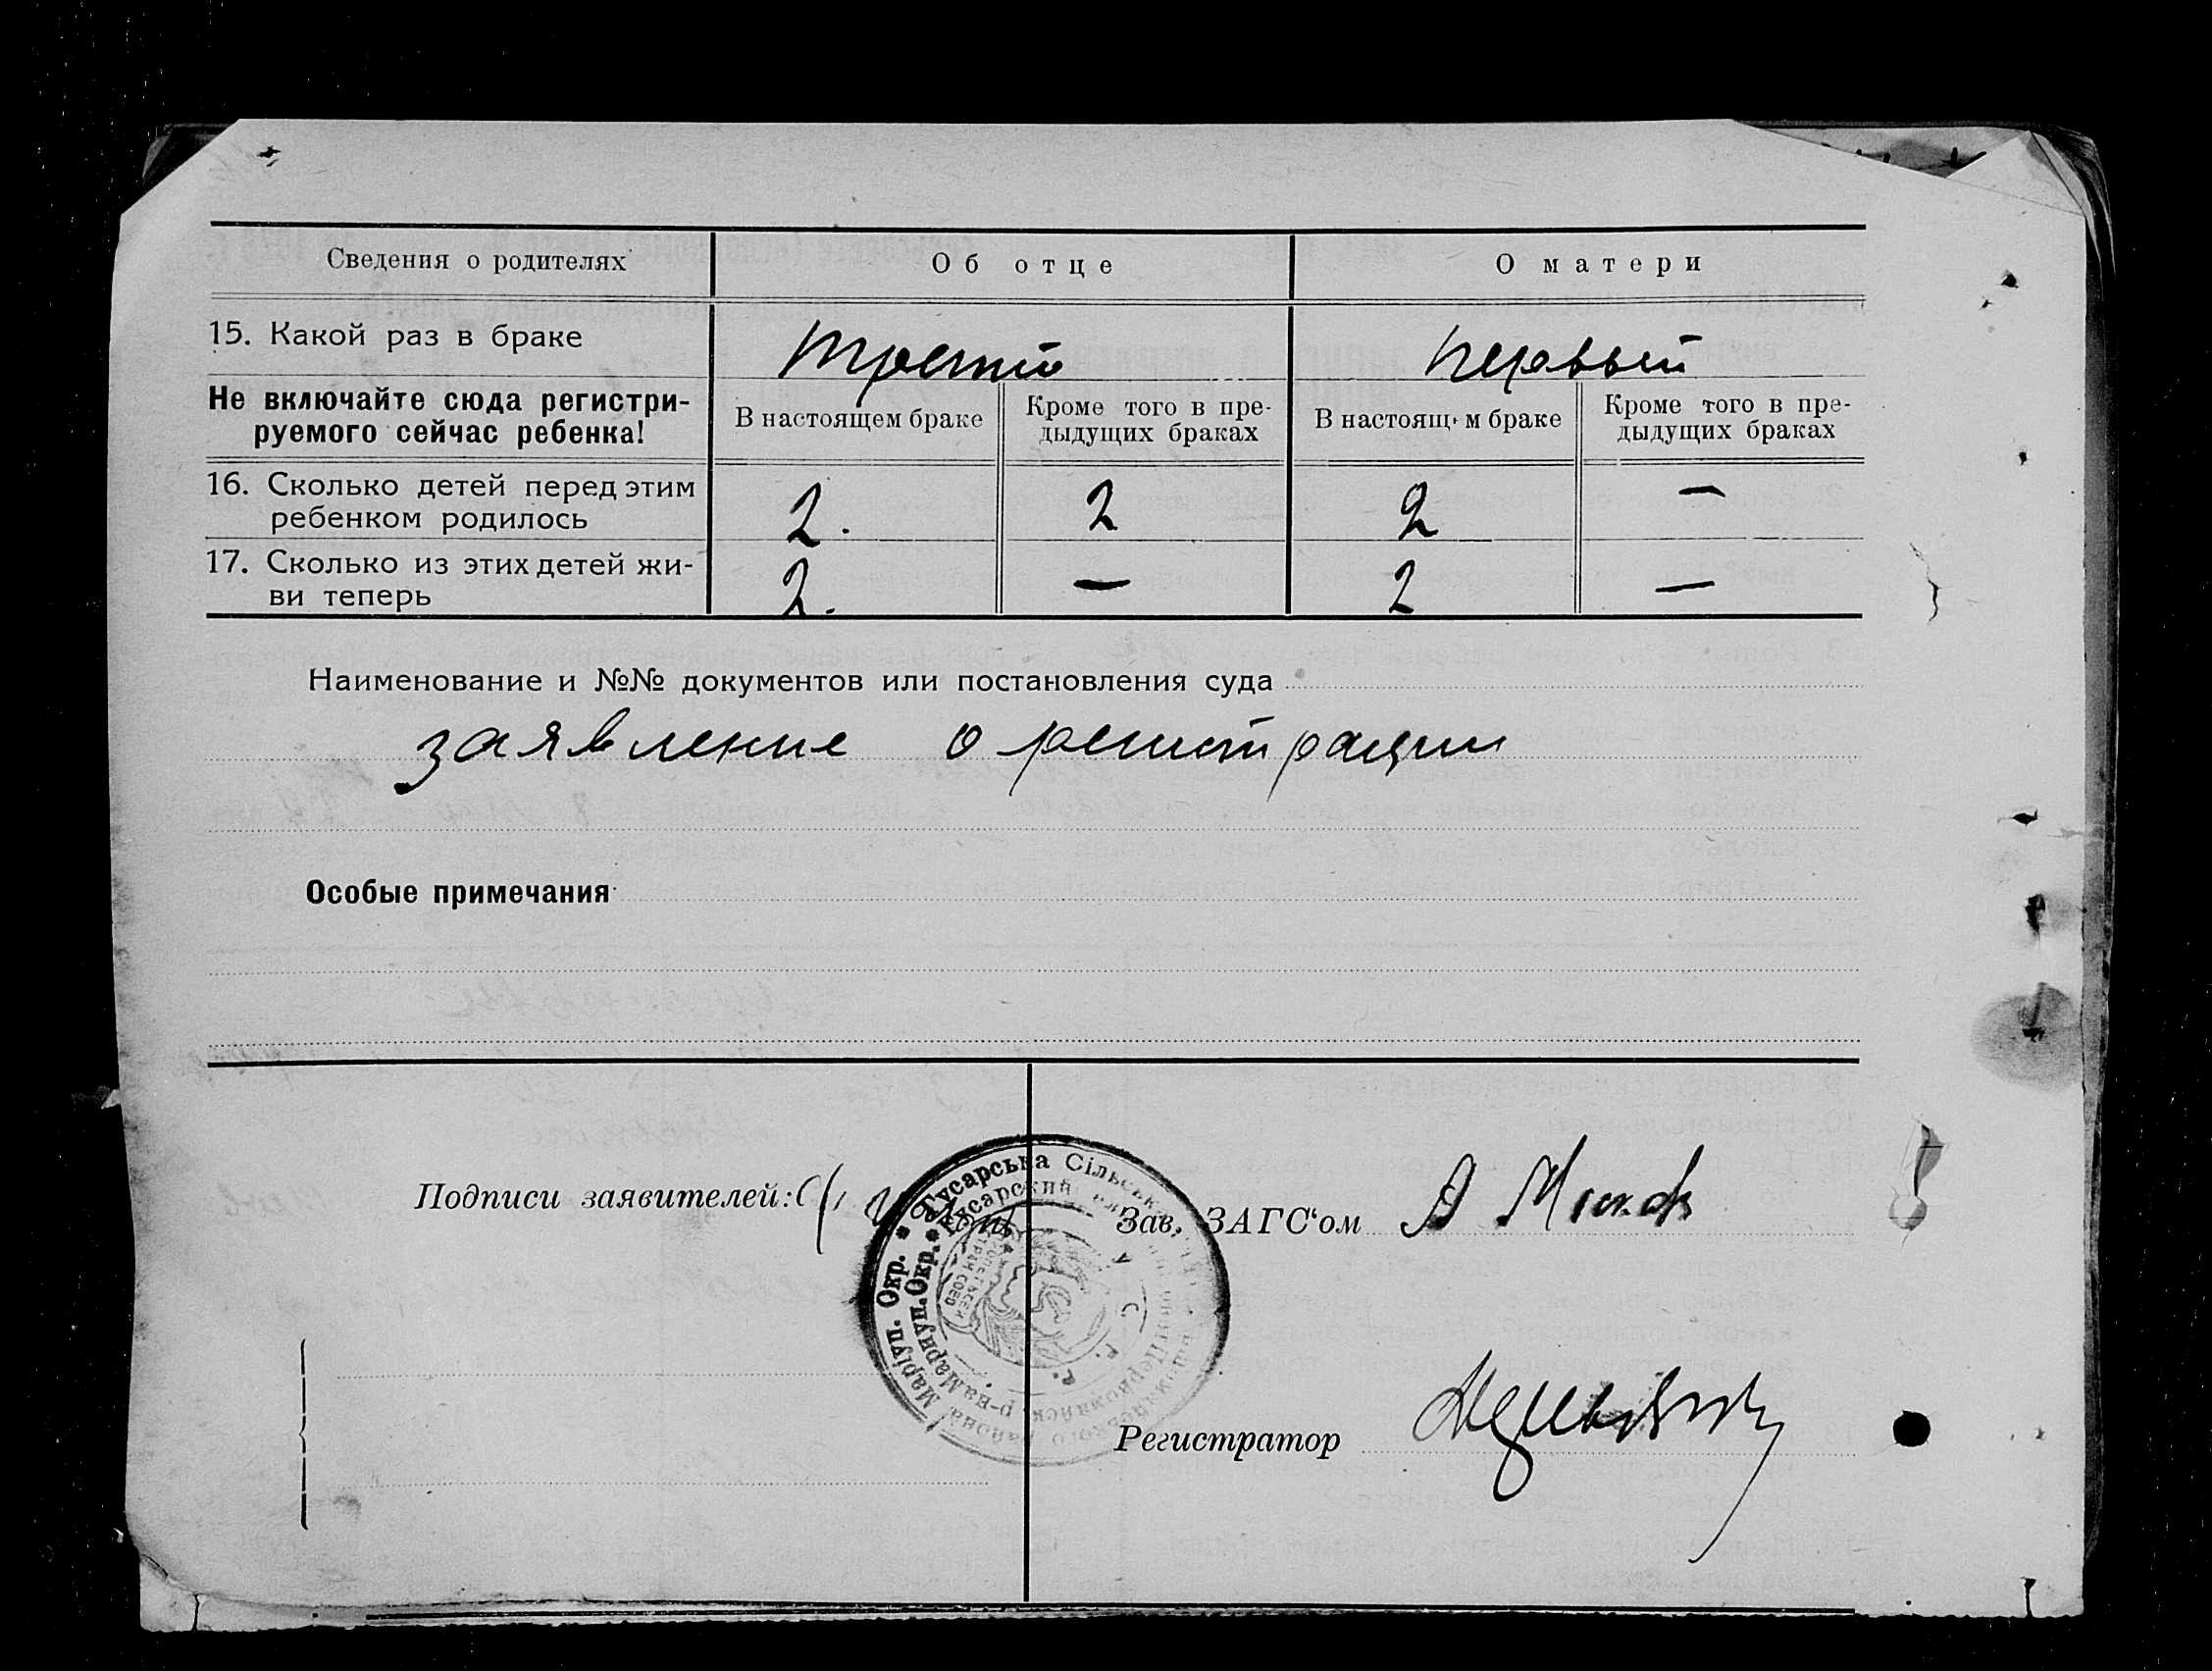 Сведения о родителях
Об отце
О матери
15. Какой раз в браке
третий
первый
Не включайте сюда регистри-
руемого сейчас ребенка!
В настоящем браке
Кроме того в пре-
дыдущих браках
В настоящ м браке
Кроме того в пре-
дыдущих браках
16. Сколько детей перед этим
ребенком родилось
2.
2
2
—
17. Сколько из этих детей жи-
ви теперь
2.
—
2
—
Наименование и №№ документов или постановления суда
заявление о регистрации
Особые примечания
Подписи заявителей:
Зав. ЗАГС‘ом
Регистратор
Маріуп. Окр. * Гусарська Сільськ
района
Мариуп. Окр. * Гусарский
Первомайск. р-на
У. С. Р. Р.